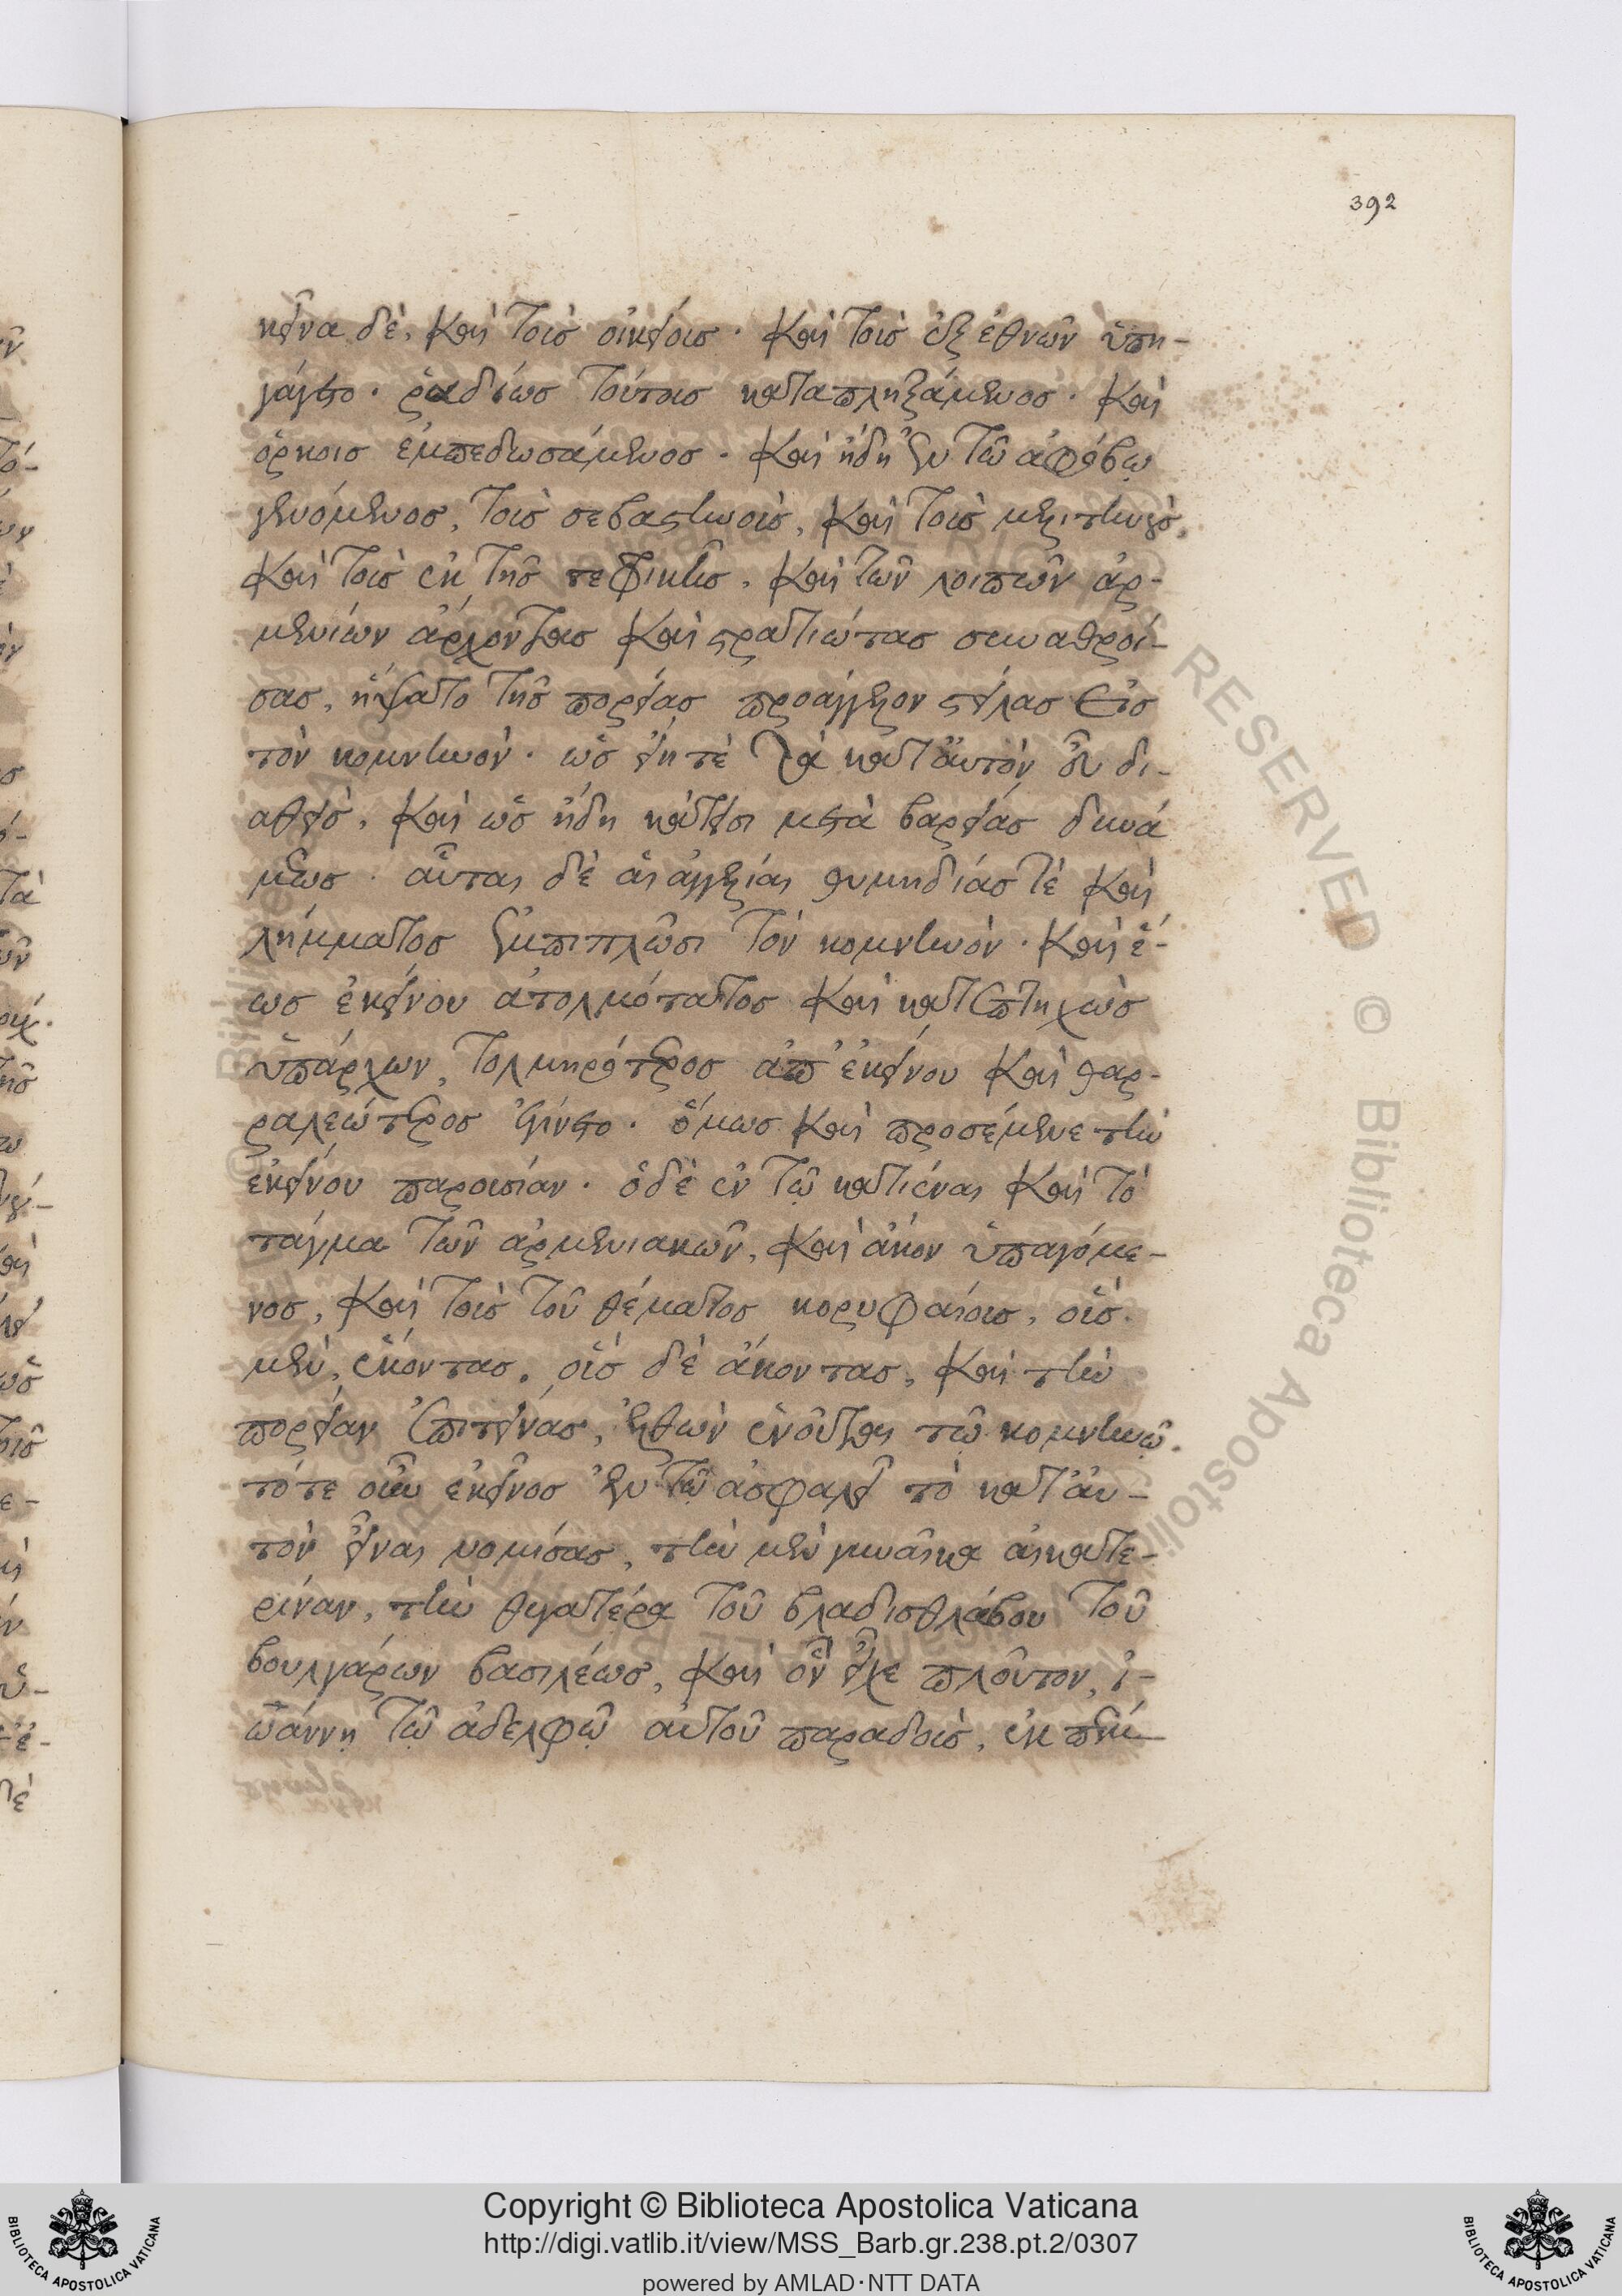 392
κεῖνα δὲ, καὶ τοὺς οἰκείους · καὶ τοὺς ἐξ ἐθνῶν ὑπη-
γάγετο · ῥαδίως τούτους καταπληξάμενος · καὶ
ὅρκοις ἐμπεδωσάμενος · καὶ ἤδη ἐν τῶ ἀφόβῳ
γενόμενος, τοὺς σεβαστηνοὺς, καὶ τοὺς μελιτηνοὺς,
καὶ τοὺς ἐκ τῆς τεφρικῆς, καὶ τῶν λοιπῶν ἀρ-
μενίων ἄρχοντας καὶ στρατιώτας συναθροί-
σας, ἥψατο τῆς πορείας προάγγελον στείλας εἰς
τὸν κομνηνὸν · ὡς εἴη τὲ τὰ κατ' αὐτὸν εὖ δι-
αθεὶς, καὶ ὡς ἤδη κάτεισι μετὰ βαρείας δυνά
μεως · αὗται δὲ αἱ ἀγγελίαι θυμηδίας τὲ καὶ
λήμματος ἐμπιπλῶσι τὸν κομνηνὸν · καὶ ἕ-
ως ἐκείνου ἀτολμότατος καὶ κατεπτηχὼς
ὑπάρχων, τολμηρότερος ἀπ' ἐκείνου καὶ θαρ-
ραλεώτερος ἐγίνετο · ὅμως καὶ προσέμενε τὴν
ἐκείνου παρουσίαν · ὁ δὲ ἐν τῷ κατιέναι καὶ τὸ
τάγμα τῶν ἀρμενιακῶν, καὶ ἄκον ὑπαγόμε-
νος, καὶ τοὺς τοῦ θέματος κορυφαίους, οὓς
μὲν, ἑκόντας, οὓς δὲ ἄκοντας, καὶ τὴν
πορείαν ἐπιτείνας, ἐλθὼν ἑνοῦται τῷ κομνηνῷ.
τότε οὖν ἐκεῖνος ἐν τῷ ἀσφαλεῖ τὸ κατ' αὐ-
τὸν εἶναι νομίσας, τὴν μὲν γυναῖκα αἰκατε-
ρίναν, τὴν θυγατέρα τοῦ βλαδισθλάβου τοῦ
βουλγάρων βασιλέως, καὶ ὃν εἶχε πλοῦτον, ἰ-
ωάννῃ τῷ ἀδελφῷ αὐτοῦ παραδοὺς, ἐκ
Copyright © Biblioteca Apostolica Vaticana
http://digi.vatlib.it/view/MSS_Barb.gr.238.pt.2/0307
powered by AMLAD·NTT DATA
BIBLIOTECA APOSTOLICA VATICANA
BIBLIOTECA APOSTOLICA VATICANA